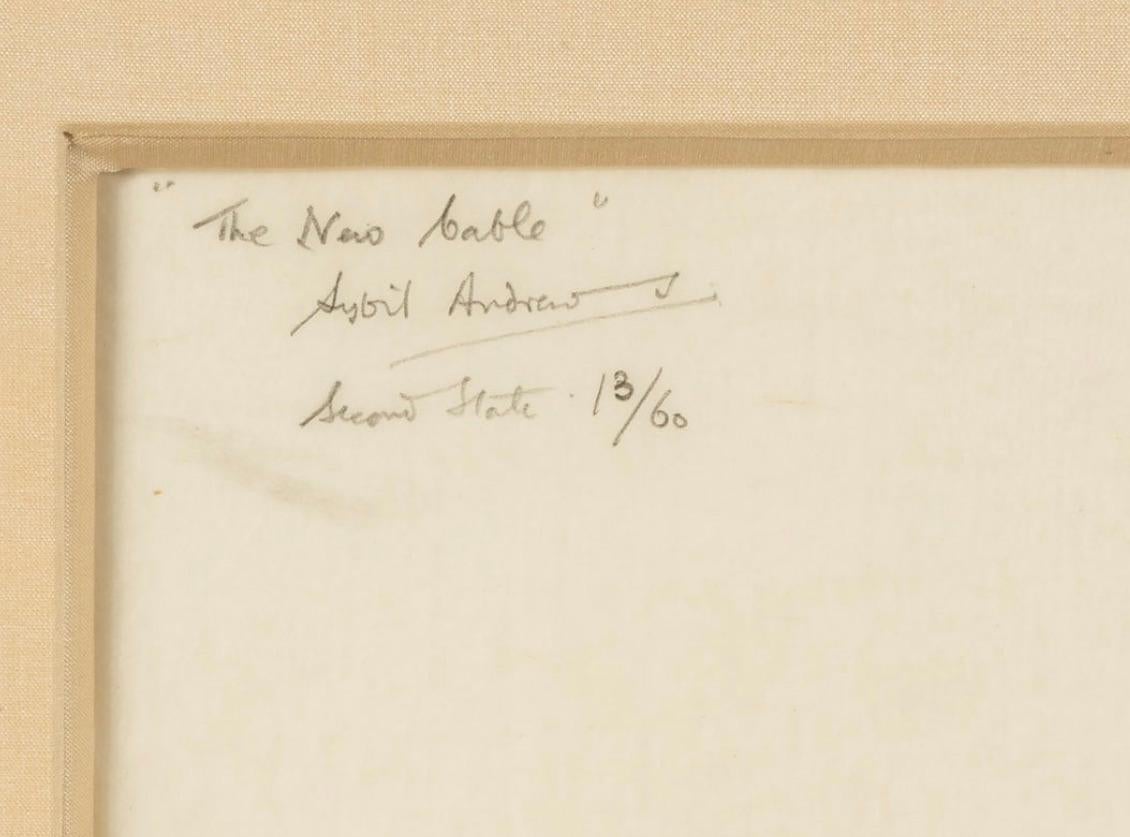 "The New Cable"
Sybil Andrews
Second State · 13/60